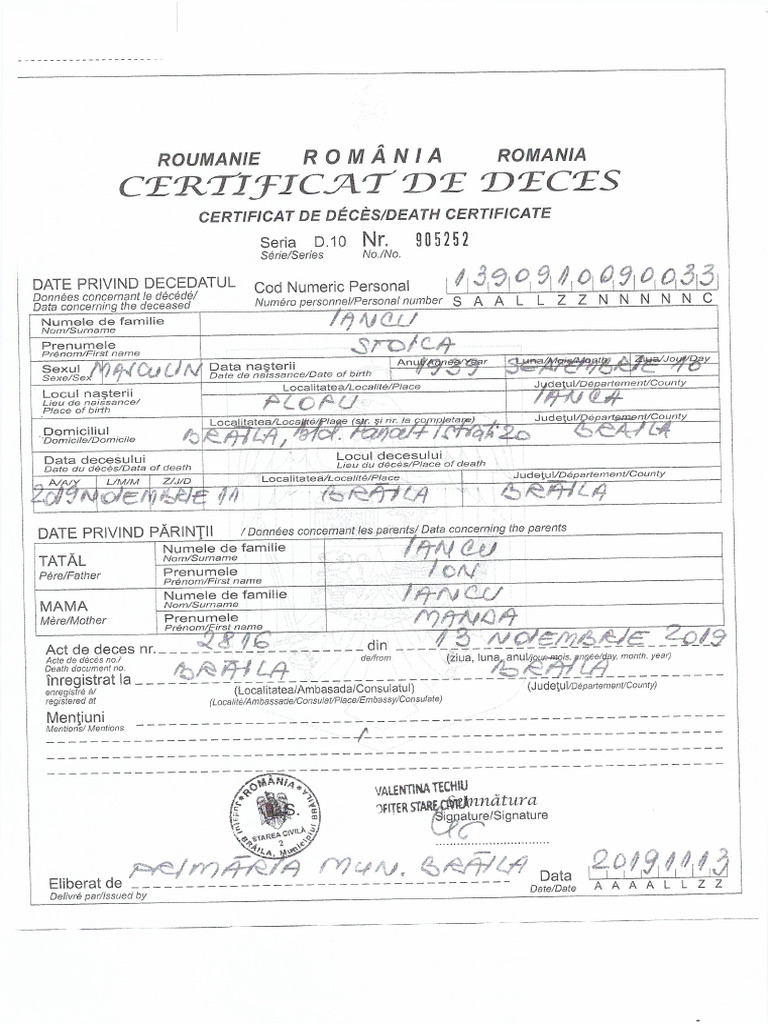 ROUMANIE ROMÂNIA ROMANIA
CERTIFICAT DE DECES
CERTIFICAT DE DÉCÈS/DEATH CERTIFICATE
Seria D.10 Nr. 905252
Série/Series No./No.
DATE PRIVIND DECEDATUL Cod Numeric Personal 1390910090033
Données concernant le décédé/ Numéro personnel/Personal number S A A L L Z Z N N N N N C
Data concerning the deceased
Numele de familie IANCU
Nom/Surname
Prenumele STOICA
Prénom/First name
Sexul MASCULIN Data nașterii Anul/Année/Year Luna/Mois/Month Ziua/Jour/Day
Sexe/Sex Date de naissance/Date of birth 1939 SEPTEMBRIE 10
Locul nașterii Localitatea/Localité/Place Județul/Département/County
Lieu de naissance/ PLOPU IANCA
Place of birth
Domiciliul Localitatea/Localité/Place (str. și nr. la completare) Județul/Département/County
Domicile/Domicile BRĂILA, Bld. Panait Istrati 20 BRĂILA
Data decesului Locul decesului
Date du décès/Data of death Lieu du décès/Place of death
A/A/Y L/M/M Z/J/D Localitatea/Localité/Place Județul/Département/County
2019 NOIEMBRIE 11 BRĂILA BRĂILA
DATE PRIVIND PĂRINȚII / Données concernant les parents/ Data concerning the parents
TATĂL Numele de familie IANCU
Père/Father Nom/Surname
Prenumele ION
Prénom/First name
MAMA Numele de familie IANCU
Mère/Mother Nom/Surname
Prenumele MANDA
Prénom/First name
Act de deces nr. 2816 din 13 NOIEMBRIE 2019
Acte de décès no./ de/from (ziua, luna, anul/jour, mois, année/day, month, year)
Death document no.
înregistrat la BRĂILA BRĂILA
enregistré à/ (Localitatea/Ambasada/Consulatul) (Județul/Département/County)
registered at (Localité/Ambassade/Consulat/Place/Embassy/Consulate)
Mențiuni
Mentions/ Mentions
ROMÂNIA
Județul BRĂILA, Municipiul BRĂILA
L.S.
STAREA CIVILĂ
2
VALENTINA TECHIU
OFIȚER STARE CIVILĂ
Semnătura
Signature/Signature
Eliberat de PRIMĂRIA MUN. BRĂILA Data 20191113
Delivré par/Issued by Date/Date A A A A L L Z Z